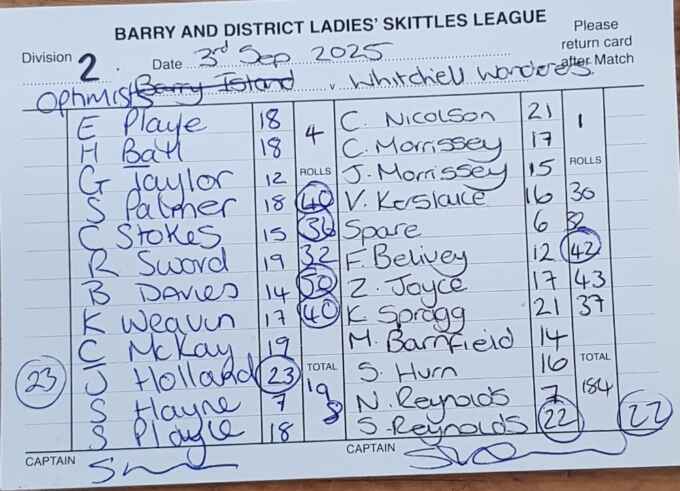 BARRY AND DISTRICT LADIES' SKITTLES LEAGUE
Please return card after Match
Division 2. Date 3rd Sep 2025
Optimists Barry Island v Whitchell Wanderes.
E Playle 18 4 C. Nicolson 21 1
H Batl 18 C. Morrissey 17
G Taylor 12 ROLLS J. Morrissey 15 ROLLS
S Palmer 18 40 V. Kerslake 16 30
C Stokes 15 36 Spare 6 32
R Sword 19 32 F. Belivey 12 42
B DAVIES 14 50 Z. Joyce 17 43
K Weavin 17 40 K Spragg 21 37
C McKay 19 M. Barnfield 14
23 J Holland 23 TOTAL S. Hurn 16 TOTAL
S Hayne 7 198 N. Reynolds 7 184
S Playle 18 S. Reynolds 22 22
CAPTAIN CAPTAIN